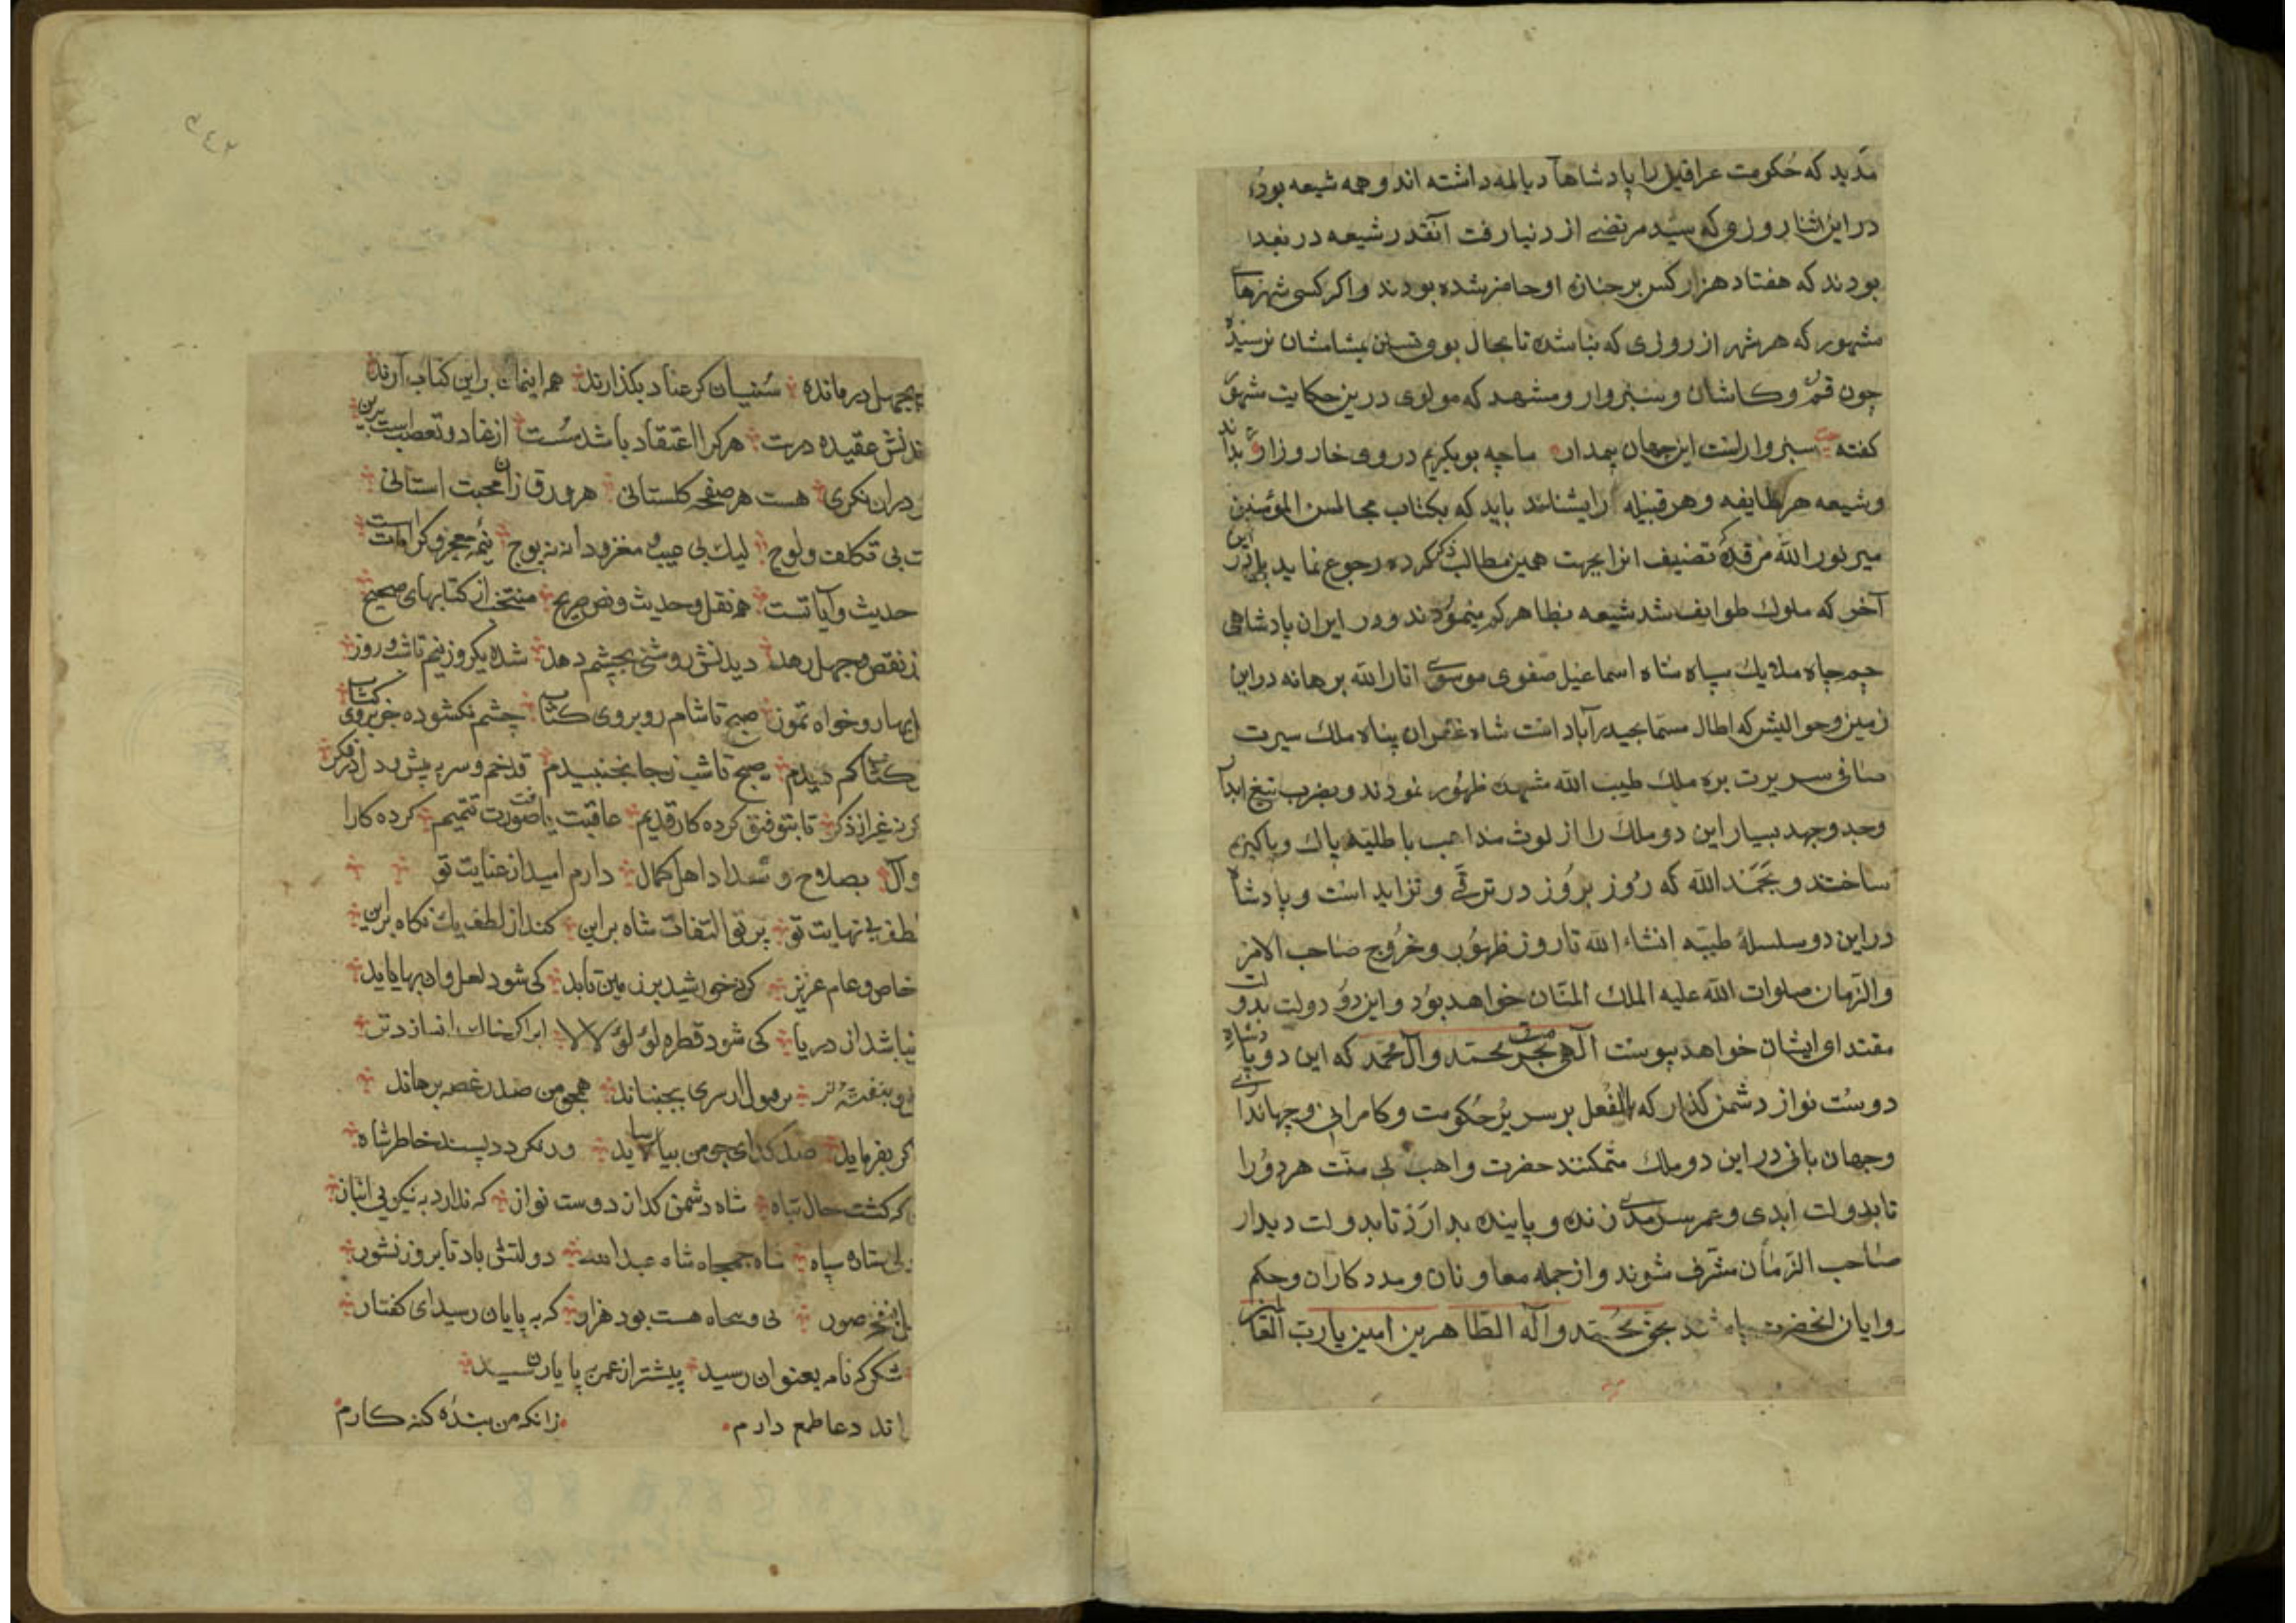 مدید که حکومت عراقین را پادشاهان دیالمه داشته اند و همه شیعه بوده
در این اثنا روزی که سید مرتضی از دنیا رفت آنقدر شیعه در بغداد
بودند که هفتاد هزار کس بر جنازه او حاضر شده بودند و اکر کسی شهرهای
مشهور که هر شهر از روزی که بنا شده تا بحال بوی تسنن بمشامشان نرسیده
چون قم و کاشان و سبزوار و مشهد که مولوی درین حکایت مشهور
کفته سبزوار است این جهان بیمدار ما چو بوبکریم در وی خوار و زار
و شیعه هر طایفه و هر قبیله را بشناسد باید که بکتاب مجالس المؤمنین
میر نور الله مرقده تصنیف انرا بجهت همین مطالب ذکر کرده رجوع نماید
آخر که ملوك طوایف شد شیعه بظاهر کم مینمودند و در ایران پادشاهی
جم جاه ملایك سپاه شاه اسماعیل صفوی موسوی انار الله برهانه در این
زمین و حوالیش که الحال مسما بحیدرآباد است شاه غفران پناه ملك سیرت
صافی سریرت بره ملك طیب الله مشهده ظهور نمودند و بضرب تیغ ابدار
وجد و جهد بسیار این دو ملك را از لوث مذاهب باطلیه پاك و پاکیزه
ساختند و بحمد الله که روز بروز در ترقی و تزاید است و پادشاهی
در این دو سلسلهٔ طیبه انشاء الله تا روز ظهور و خروج صاحب الامر
والزمان صلوات الله علیه الملك المنان خواهد بود و این دو دولت بدولت
مقتدای ایشان خواهد پیوست آلهی بحرمت محمد و آل محمد که این دو پادشاه
دوست نواز دشمن کذار که بالفعل بر سریر حکومت و کامرانی و جهانداری
و جهان بانی در این دو ملك متمکنند حضرت واهب بی منت هر دو را
تا بدولت ابدی و عمر سرمدی زنده و پاینده بدارد تا بدولت دیدار
صاحب الزمان مشرف شوند و از جمله معاونان و مددکاران و حکم
روایان انحضرت باشند بحق محمد و آله الطاهرین امین یا رب العالمین
۳۴۲
بجهل در مانده سنیان کر عناد بکذارند هم ایمان براین کتاب آرند
عقیده درست هر کرا اعتقاد باشد سست از عناد و تعصب است برین
دران نکری هست هر صفحه کلستانی هر ورق زان محبت استانی
بی تکلف و لوج لیك بی عیب و مغزدار نه پوچ نیمه معجز و کرامات است
حدیث و آیاتست هم نقل و حدیث و نص صریح منتخب از کتابهای صحیح
ز نقص و جهل رهد دیدنش روشنی بچشم دهد شده یکروز نیم تا شب و روز
بهار و خواه تموز صبح تا شام رو بروی کتاب چشم نکشوده جز بروی کتاب
کتاب کم دیدم صبح تا شب ز جا نجنبیدم قد خم و سر به پیش و دل در فکر
غیر از ذکر تا بتوفیق کرده کار قدیم عاقبت یافت صورت تتمیم کرده کارا
وآل بصلاح و سداد اهل کمال دارم امید از عنایت تو
لطف بی نهایت تو پرتو التفات شاه براین کند از لطف یك نکاه براین
خاص و عام عزیز کر نه خورشید بر زمین تابد کی شود لعل و ان بها یابد
نباشد از دریا کی شود قطره لؤلؤ لالا
سری بجنباند همچو من صد ز غصه برهاند
کر بفرماید صد کدای چو من بیاساید ور نکردد پسند خاطر شاه
که کشت حال تباه شاه دشمن کداز دوست نواز که ندارد به نیکویی انباز
ستاره سپاه شاه جمجاه شاه عبدالله دولتش باد تا بروز نشور
نفخ صور هست بود هزار که به پایان رسید ای کفتار
شکر که نامه بعنوان رسید پیشتر از عمر به پایان رسید
دعا طمع دارم زانکه من بندهٔ کنه کارم